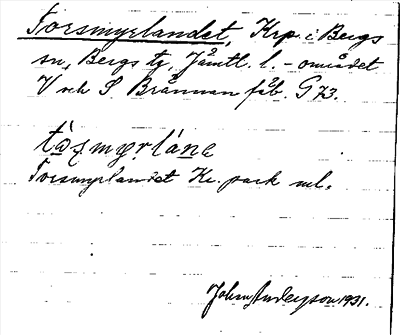 Torsmyrlandet, Krp. i Bergs
sn, Bergs tg, Jämtl. l. - området
V och S Brännan fäb. G 73.
tàs̩myr̩láne
Torsmyrlandet Kr. park ml.
Johny Anderson 1931.